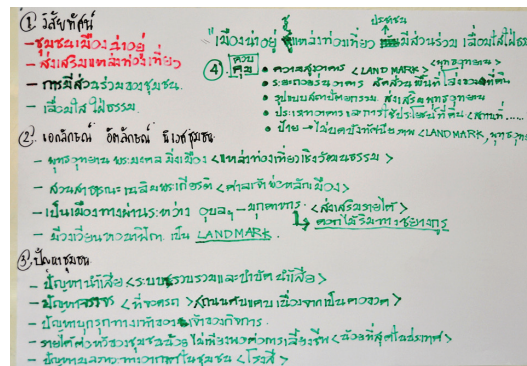 ① วิสัยทัศน์
- ชุมชนเมืองน่าอยู่
- ส่งเสริมแหล่งท่องเที่ยว
- การมีส่วนร่วมของชุมชน.
- เลื่อมใสใฝ่ธรรม.
ชู ประชาชน
"เมืองน่าอยู่ สู่แหล่งท่องเที่ยว มีส่วนร่วม เลื่อมใสใฝ่ธรรม
④ ควบคุม
• ความสูงอาคาร <LANDMARK> <พุทธอุทยาน>
• ระยะถอยร่นอาคาร สัดส่วนพื้นที่โล่งของที่ดิน
• รูปแบบสถาปัตยกรรม ส่งเสริมพุทธอุทยาน
• ประเภทอาคารและการใช้ประโยชน์ที่ดิน <สถานที่.....
• ป้าย → ไม่บดบังทัศนียภาพ <LANDMARK, พุทธอุทยาน
②. เอกลักษณ์ อัตลักษณ์ ชุมชน.
- พุทธอุทยาน พระมงคลมิ่งเมือง <แหล่งท่องเที่ยวเชิงวัฒนธรรม>
- สวนสาธารณะเฉลิมพระเกียรติ <ศาลเจ้าพ่อหลักเมือง>
- เป็นเมืองทางผ่านระหว่าง อุบลฯ - มุกดาหาร. <ส่งเสริมรายได้>
↳ ค้าขายริมทางชยางกูร
- มีวงเวียนหอนาฬิกา เป็น LANDMARK.
③. ปัญหาชุมชน
- ปัญหาน้ำเสีย <ระบบรวบรวมและบำบัดน้ำเสีย>
- ปัญหาจราจร <ที่จอดรถ> <ถนนคับแคบเนื่องจากเป็นคอขวด>
- ปัญหาบุกรุกทางเท้าของเจ้าของกิจการ.
- รายได้ต่อหัวของชุมชนน้อย ไม่เพียงพอต่อการเลี้ยงชีพ <น้อยที่สุดในประเทศ>
- ปัญหามลภาวะทางอากาศในชุมชน <โรงสี>